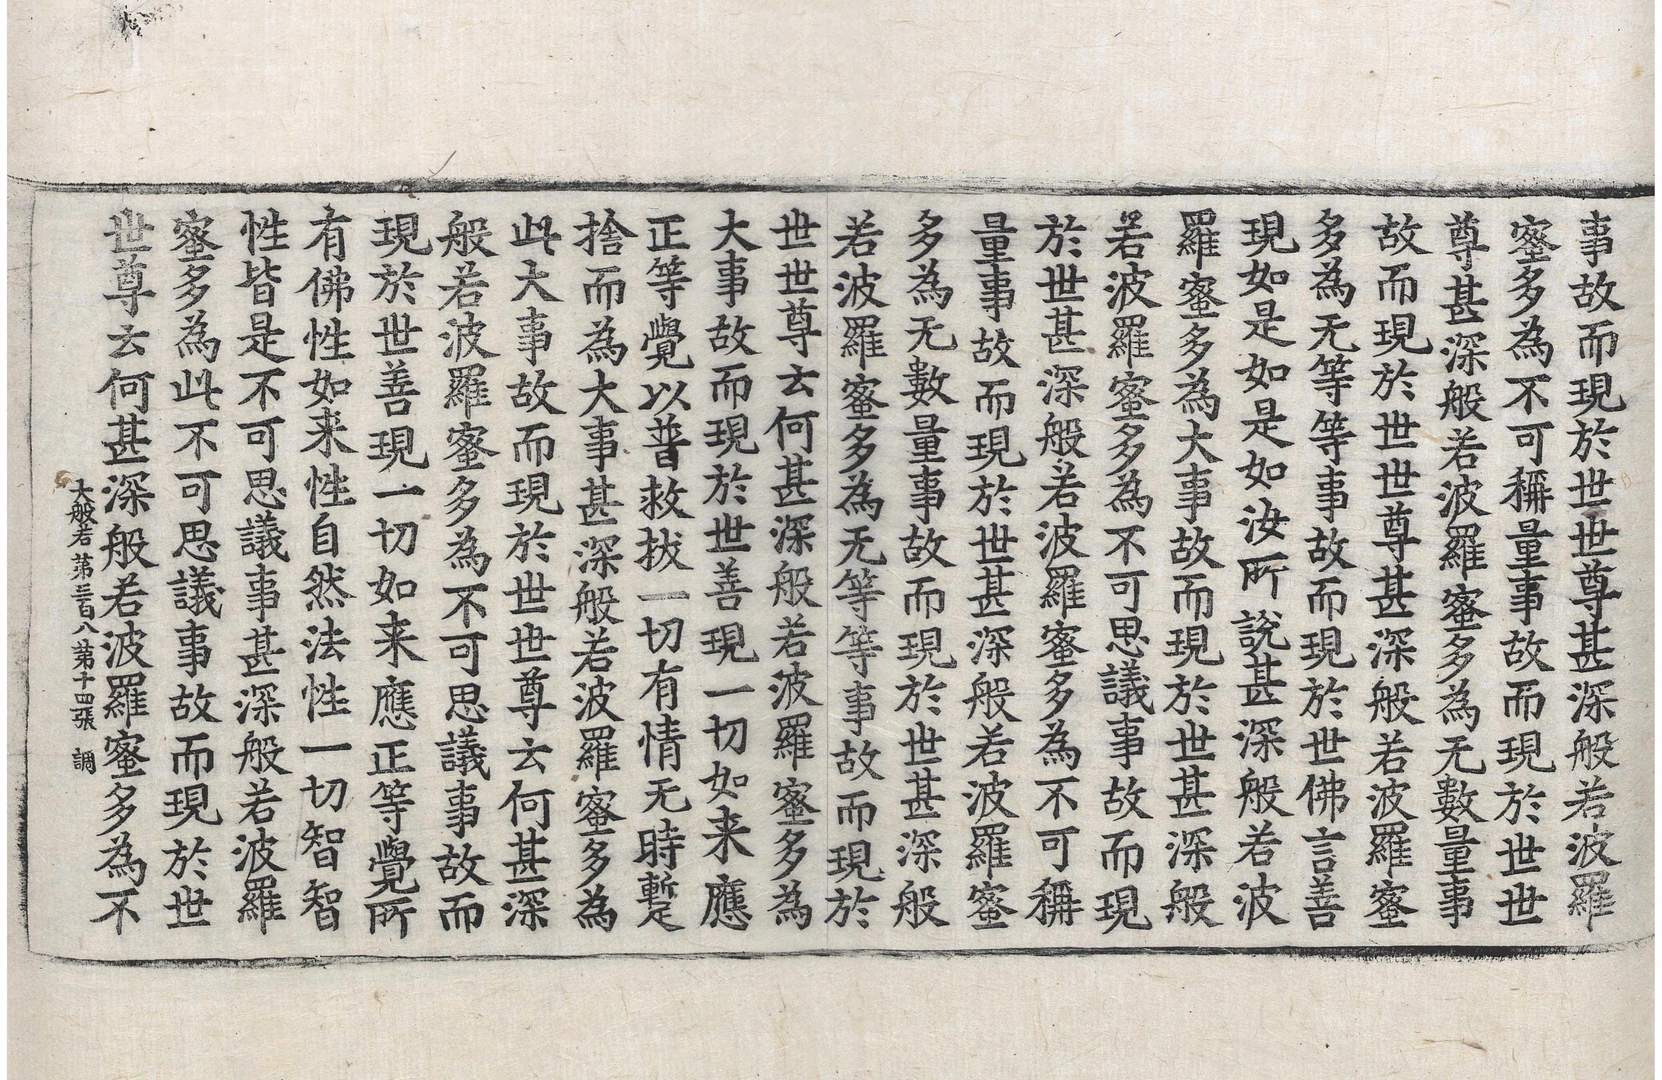 事故而現於世世尊甚深般若波羅
蜜多為不可稱量事故而現於世世
尊甚深般若波羅蜜多為无數量事
故而現於世世尊甚深般若波羅蜜
多為无等等事故而現於世佛言善
現如是如是如汝所說甚深般若波
羅蜜多為大事故而現於世甚深般
若波羅蜜多為不可思議事故而現
於世甚深般若波羅蜜多為不可稱
量事故而現於世甚深般若波羅蜜
多為无數量事故而現於世甚深般
若波羅蜜多為无等等事故而現於
世世尊云何甚深般若波羅蜜多為
大事故而現於世善現一切如来應
正等覺以普救拔一切有情无時暫
捨而為大事甚深般若波羅蜜多為
此大事故而現於世世尊云何甚深
般若波羅蜜多為不可思議事故而
現於世善現一切如来應正等覺所
有佛性如来性自然法性一切智智
性皆是不可思議事甚深般若波羅
蜜多為此不可思議事故而現於世
世尊云何甚深般若波羅蜜多為不
大般若第三百八第十四張 調